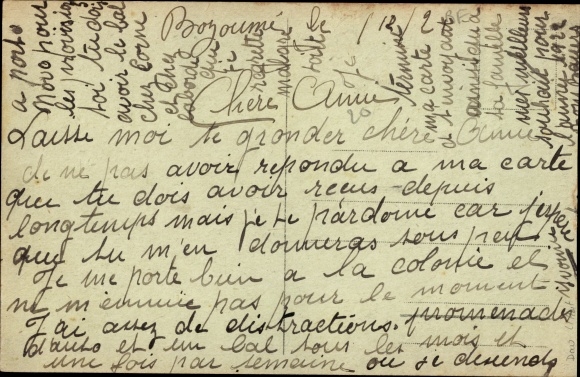 Bozoumé le 1/12/2
Chère Annie
Laisse moi te gronder chère Annie
de ne pas avoir repondu a ma carte
que tu dois avoir recus depuis
longtemps mais je te pardonne car j'espere
que tu m'en donneras sous peu
Je me porte bien a la colonie et
ne m'ennuie pas pour le moment
J'ai assez de distractions. promenades
d'auto et un bal tous les mois et
une fois par semaine ou je descends
a
nous pour
les
toi tu dois
avoir le bal
chez
et
que
je
regrette
malgre
Je
termine
ma carte
et t'envoyant
ainsi qu'a
ta famille
mes meilleurs
souhait pour
1922
Yvonne